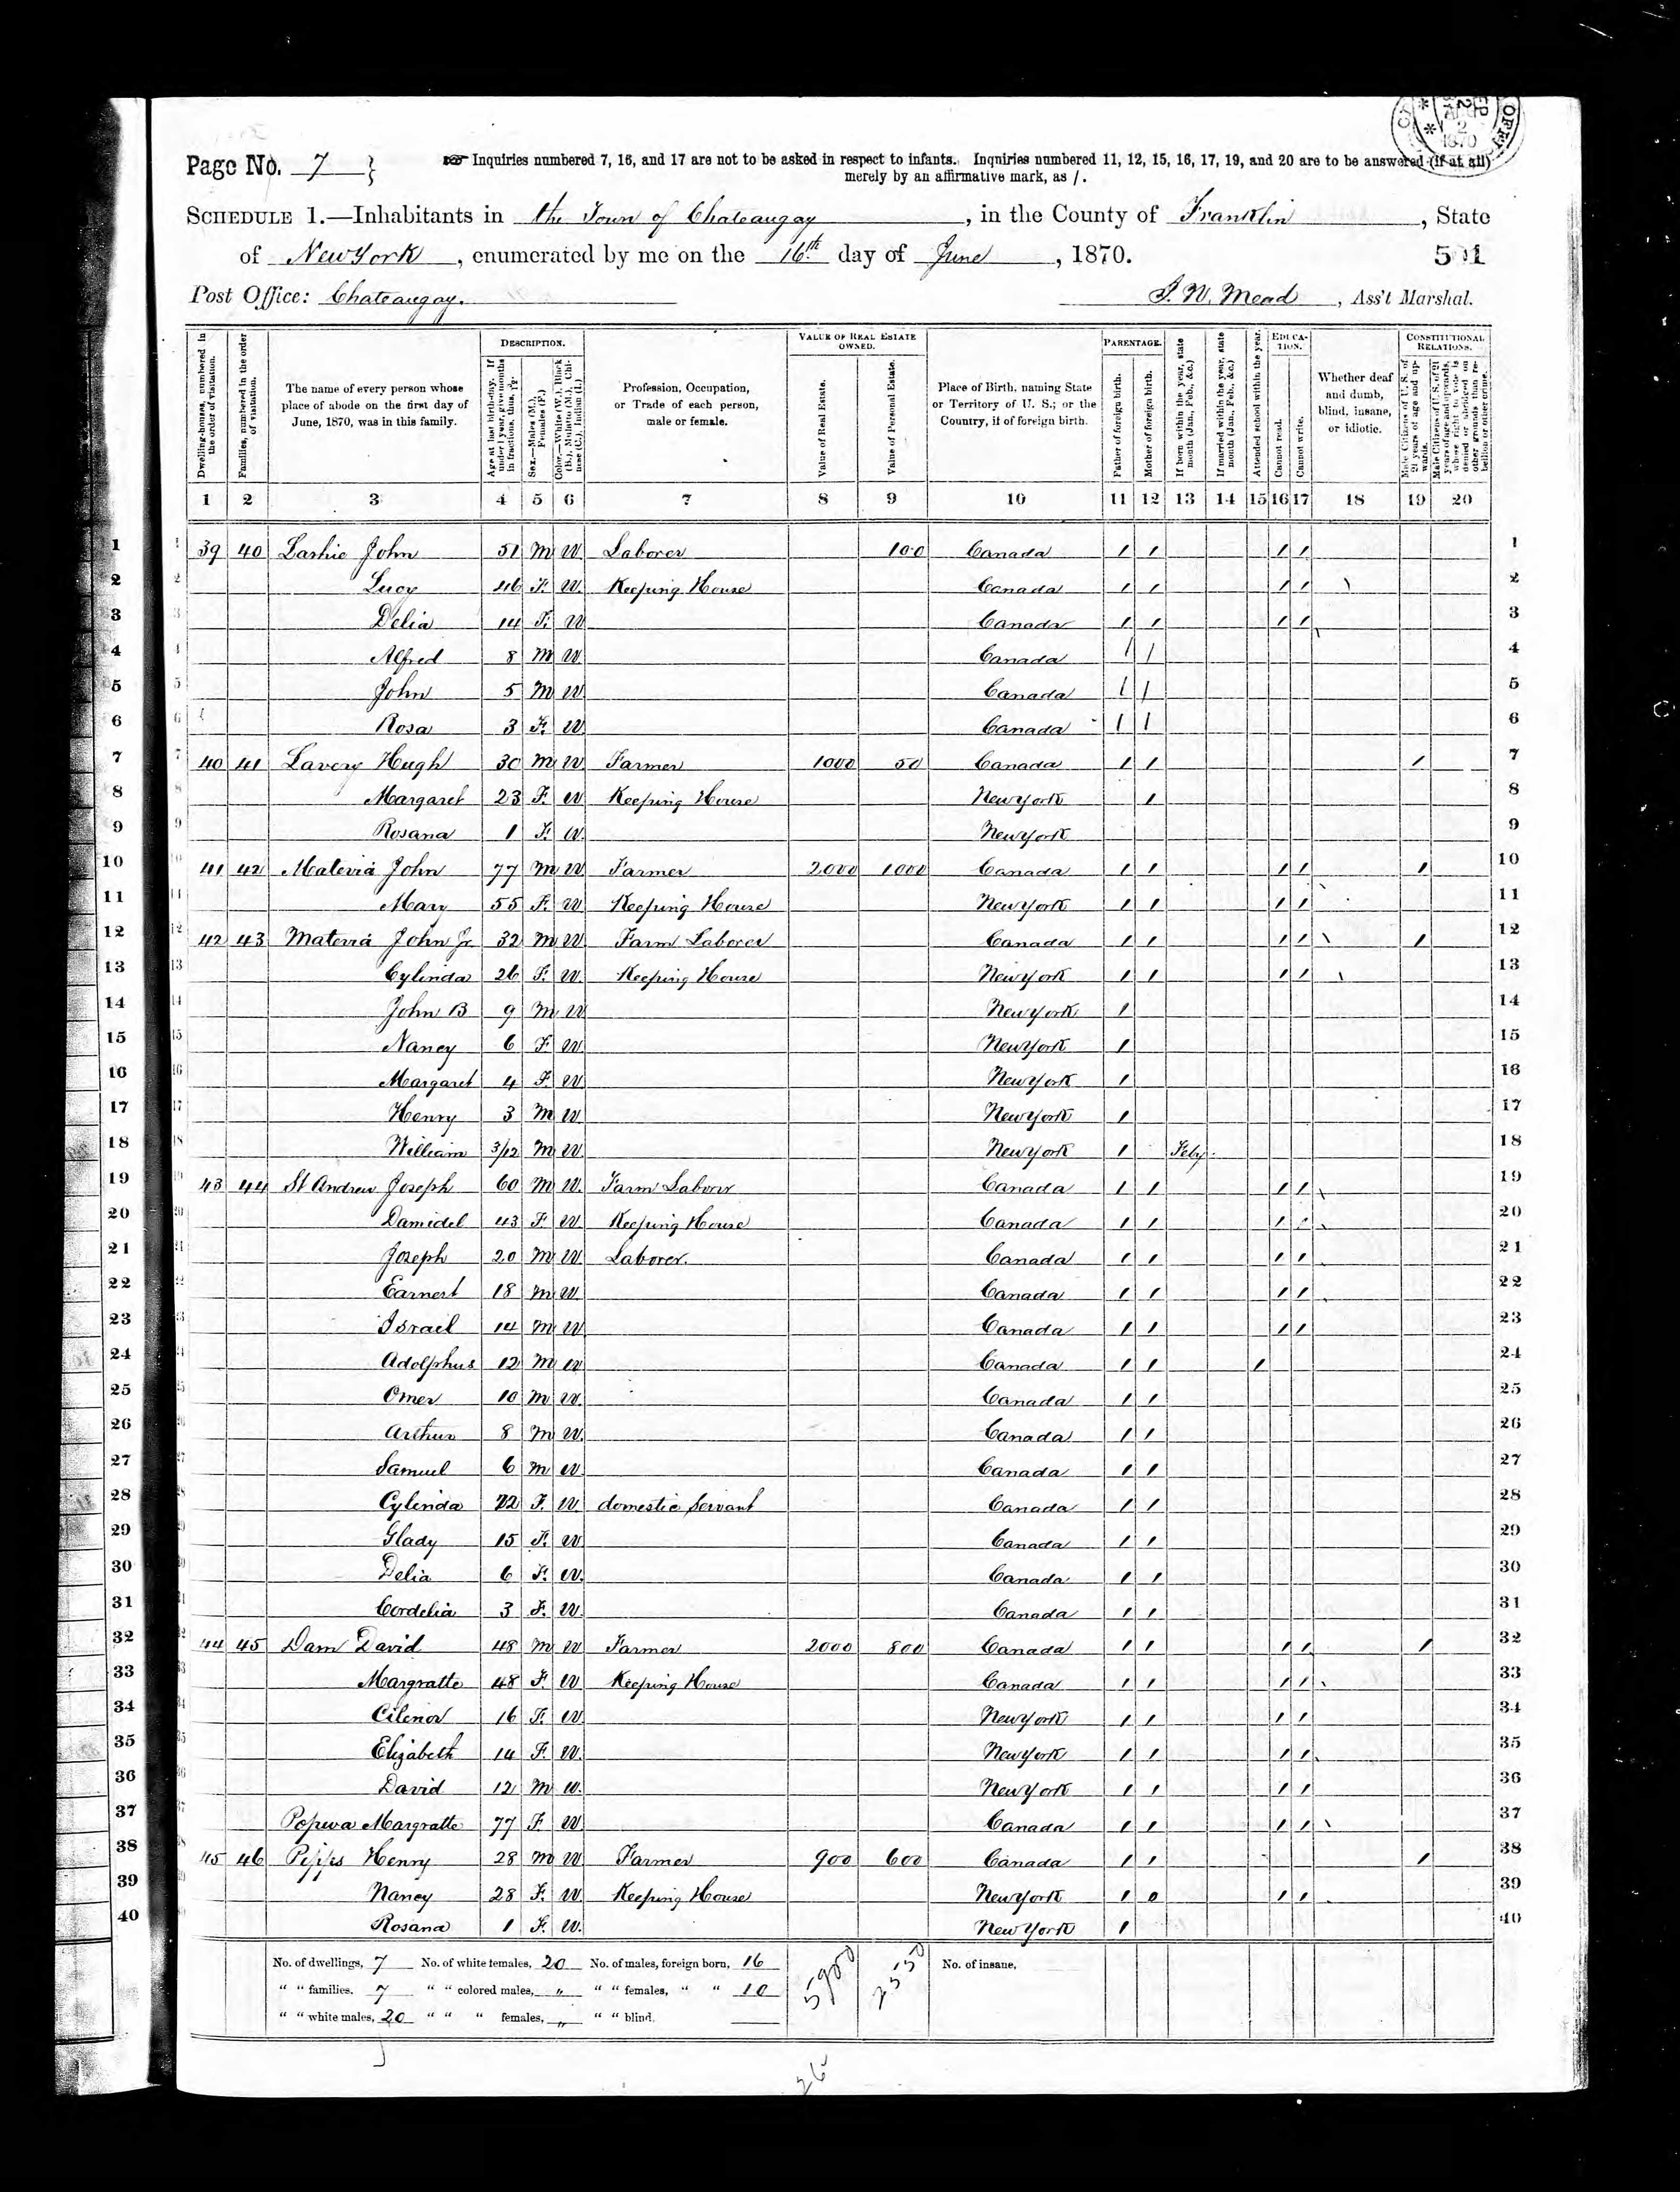 Page No. 7 } Inquiries numbered 7, 16, and 17 are not to be asked in respect to infants. Inquiries numbered 11, 12, 15, 16, 17, 19, and 20 are to be answered (if at all)
merely by an affirmative mark, as /.
SCHEDULE 1.—Inhabitants in the Town of Chateaugay, in the County of Franklin, State
of New York, enumerated by me on the 16th day of June, 1870. 501
Post Office: Chateaugay. J. W. Mead, Ass't Marshal.
Dwelling-houses, numbered in the order of visitation.
Families, numbered in the order of visitation.
The name of every person whose place of abode on the first day of June, 1870, was in this family.
DESCRIPTION.
Age at last birth-day. If under 1 year, give months in fractions, thus, 3/12.
Sex.—Males (M.), Females (F.)
Color.—White (W.), Black (B.), Mulatto (M.), Chinese (C.), Indian (I.)
Profession, Occupation, or Trade of each person, male or female.
VALUE OF REAL ESTATE OWNED.
Value of Real Estate.
Value of Personal Estate.
Place of Birth, naming State or Territory of U. S.; or the Country, if of foreign birth.
PARENTAGE.
Father of foreign birth.
Mother of foreign birth.
If born within the year, state month (Jan., Feb., &c.)
If married within the year, state month (Jan., Feb., &c.)
Attended school within the year.
EDUCATION.
Cannot read.
Cannot write.
Whether deaf and dumb, blind, insane, or idiotic.
CONSTITUTIONAL RELATIONS.
Male Citizens of U. S. of 21 years of age and upwards.
Male Citizens of U. S. of 21 years of age and upwards, whose right to vote is denied or abridged on other grounds than rebellion or other crime.
1 2 3 4 5 6 7 8 9 10 11 12 13 14 15 16 17 18 19 20
1 39 40 Lashie John 51 M W Laborer 100 Canada / / / / 1
2 Lucy 46 F. W. Keeping House Canada / / / / 2
3 Delia 14 F. W Canada / / / / 3
4 Alfred 8 M W. Canada / / 4
5 John 5 M W. Canada / / 5
6 Rosa 3 F. W. Canada / / 6
7 40 41 Lavery Hugh 30 M W Farmer 1000 50 Canada / / / 7
8 Margaret 23 F. W Keeping House New York / 8
9 Rosana 1 F. W. New York 9
10 41 42 Malevia John 77 M W Farmer 2000 1000 Canada / / / / / 10
11 Mary 55 F. W Keeping House New York / / / / 11
12 42 43 Matevia John Jr. 32 M W Farm Laborer Canada / / / / / 12
13 Cylinda 26 F. W. Keeping House New York / / / / 13
14 John B 9 M W New York / 14
15 Nancy 6 F W. New York / 15
16 Margaret 4 F. W. New York / 16
17 Henry 3 M W. New York / 17
18 William 3/12 M W. New York / Feby. 18
19 43 44 St Andrew Joseph 60 M W. Farm Laborer Canada / / / / 19
20 Damidel 43 F W. Keeping House Canada / / / / 20
21 Joseph 20 M W. Laborer. Canada / / / / 21
22 Earnest 18 M W. Canada / / / / 22
23 Israel 14 M W Canada / / / / 23
24 Adolphus 12 M W Canada / / / 24
25 Omer 10 M W. Canada / / 25
26 Arthur 8 M W. Canada / / 26
27 Samuel 6 M W Canada / / 27
28 Cylinda 22 F. W domestic Servant Canada / / 28
29 Glady 15 F. W Canada / / 29
30 Delia 6 F. W. Canada / / 30
31 Cordelia 3 F. W. Canada / / 31
32 44 45 Dam David 48 M W Farmer 2000 800 Canada / / / / / 32
33 Margratte 48 F. W Keeping House Canada / / / / 33
34 Cilenor 16 F. W. New York / / / / 34
35 Elizabeth 14 F. W. New York / / / / 35
36 David 12 M W. New York / / / / 36
37 Popwa Margratte 77 F. W Canada / / / / 37
38 45 46 Pipps Henry 28 M W Farmer 900 600 Canada / / / 38
39 Nancy 28 F. W. Keeping House New York / 0 / / 39
40 Rosana 1 F. W. New York / 40
No. of dwellings, 7 No. of white females, 20 No. of males, foreign born, 16 5900 2550 No. of insane,
" " families, 7 " " colored males, " " " females, " " 10
" " white males, 20 " " " females, " " " blind.
26